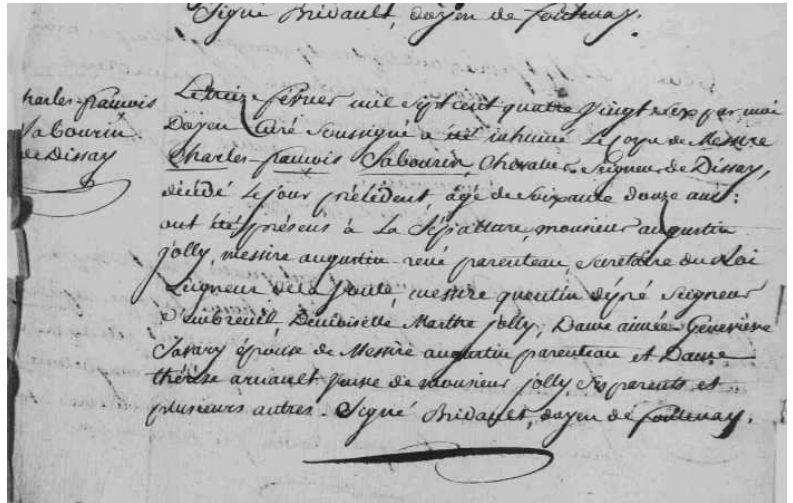 Signé Bridault, doyen de fontenay.
harles-françois
Sabourin
de Dissay
Le treize février mil sept cent quatre vingt six par moi
Doyen Curé soussigné a été inhumé le corps de Messire
Charles-françois Sabourin, Chevalier, Seigneur de Dissay,
décédé le jour précédent, âgé de soixante douze ans:
ont été présens à La Sépulture, monsieur augustin
jolly, messire augustin-rené parenteau, Secrétaire du Roi
Seigneur de la Voute, messire quentin dépré Seigneur
d'embreuil, Demoiselle Marthe jolly, Dame aimée Geneviève
Savary épouse de Messire augustin parenteau et Dame
thérèse arnault épouse de monsieur jolly, ses parents et
plusieurs autres. Signé Bridault, doyen de fontenay.